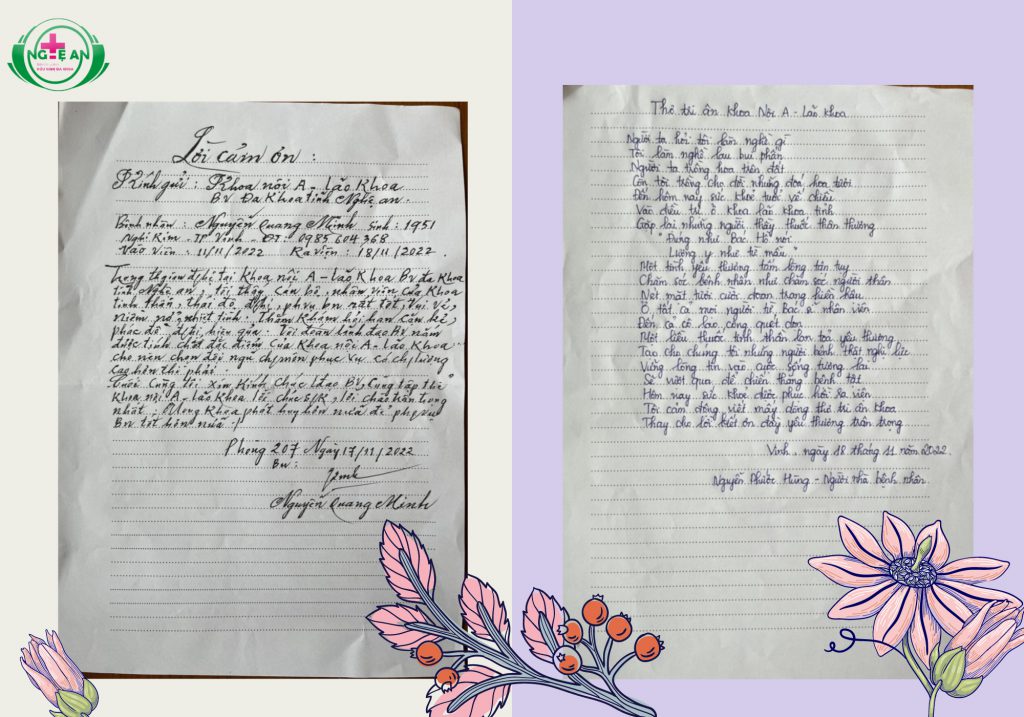 NGHỆ AN
Lời cảm ơn :
Kính gửi : Khoa nội A - Lão Khoa
BV Đa Khoa tỉnh Nghệ an.
Bệnh nhân : Nguyễn Quang Minh sinh : 1951
Nghi Kim - TP Vinh - ĐT : 0985 604 368
Vào viện : 11/11/2022 Ra viện : 18/11/2022.
Trong thời gian đ/trị tại Khoa nội A - Lão Khoa BV đa Khoa
tỉnh Nghệ an, tôi thấy Cán bộ, nhân viên của Khoa
tinh thần, thái độ đ/trị, ph/vụ bn rất tốt, Vui Vẻ,
niềm nở, nhiệt tình. Thăm Khám hỏi han cần kẽ,
phác đồ đ/trị hiệu quả. Tôi đoán lãnh đạo BV nắm
được tính chất đặc điểm của Khoa nội A - Lão Khoa
cho nên chọn đội ngũ ch/môn phục vụ có ch/lượng
cao hơn thì phải.
Cuối cùng tôi xin kính chúc L/đạo BV, cùng tập thể
Khoa nội A - Lão Khoa lời chúc S/K, lời chào trân trọng
nhất. Mong Khoa phát huy hơn nữa để ph/vụ
Bn tốt hơn nữa.
Phòng 207 Ngày 17/11/2022
Bn :
Nguyễn Quang Minh
Thơ tri ân Khoa Nội A - Lão Khoa
Người ta hỏi tôi làm nghề gì
Tôi làm nghề lau bụi phấn
Người ta trồng hoa trên đất
Còn tôi trồng cho đời những đoá hoa tươi
Đến hôm nay sức khoẻ tuổi về chiều
Vào điều trị ở khoa lão khoa tỉnh
Gặp lại những người thầy thuốc thân thương
"Đúng như Bác Hồ nói
Lương y như từ mẫu"
Một tình yêu thương tấm lòng tận tuỵ
Chăm sóc bệnh nhân như chăm sóc người thân
Nét mặt tươi cười đoan trang hiền hậu
Ở tất cả mọi người từ bác sĩ nhân viên
Đến cả cô lao công quét dọn
Một liều thuốc tinh thần lan toả yêu thương
Tạo cho chúng tôi những người bệnh thật nghị lực
Vững lòng tin vào cuộc sống tương lai
Sẽ vượt qua để chiến thắng bệnh tật
Hôm nay sức khoẻ được phục hồi ra viện
Tôi cảm động viết mấy dòng thơ tri ân khoa
Thay cho lời biết ơn đầy yêu thương trân trọng
Vinh, ngày 18 tháng 11 năm 2022.
Nguyễn Phước Hùng - Người nhà bệnh nhân.